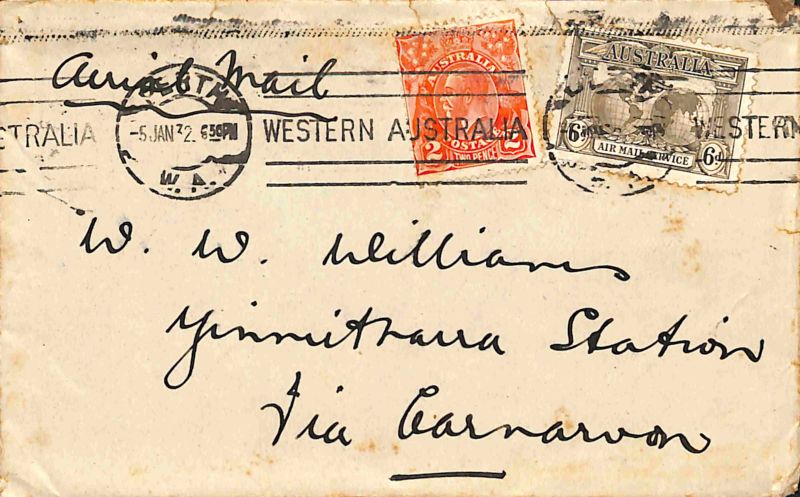 Aerial Mail
PERTH
-5 JAN 32. 6 30PM
W. A.
TRALIA
WESTERN AUSTRALIA
WESTERN
AUSTRALIA
POSTAGE
2 TWO PENCE 2
AUSTRALIA
6d AIR MAIL SERVICE 6d
W. W. Williams
Yinnietharra Station
Via Carnarvon